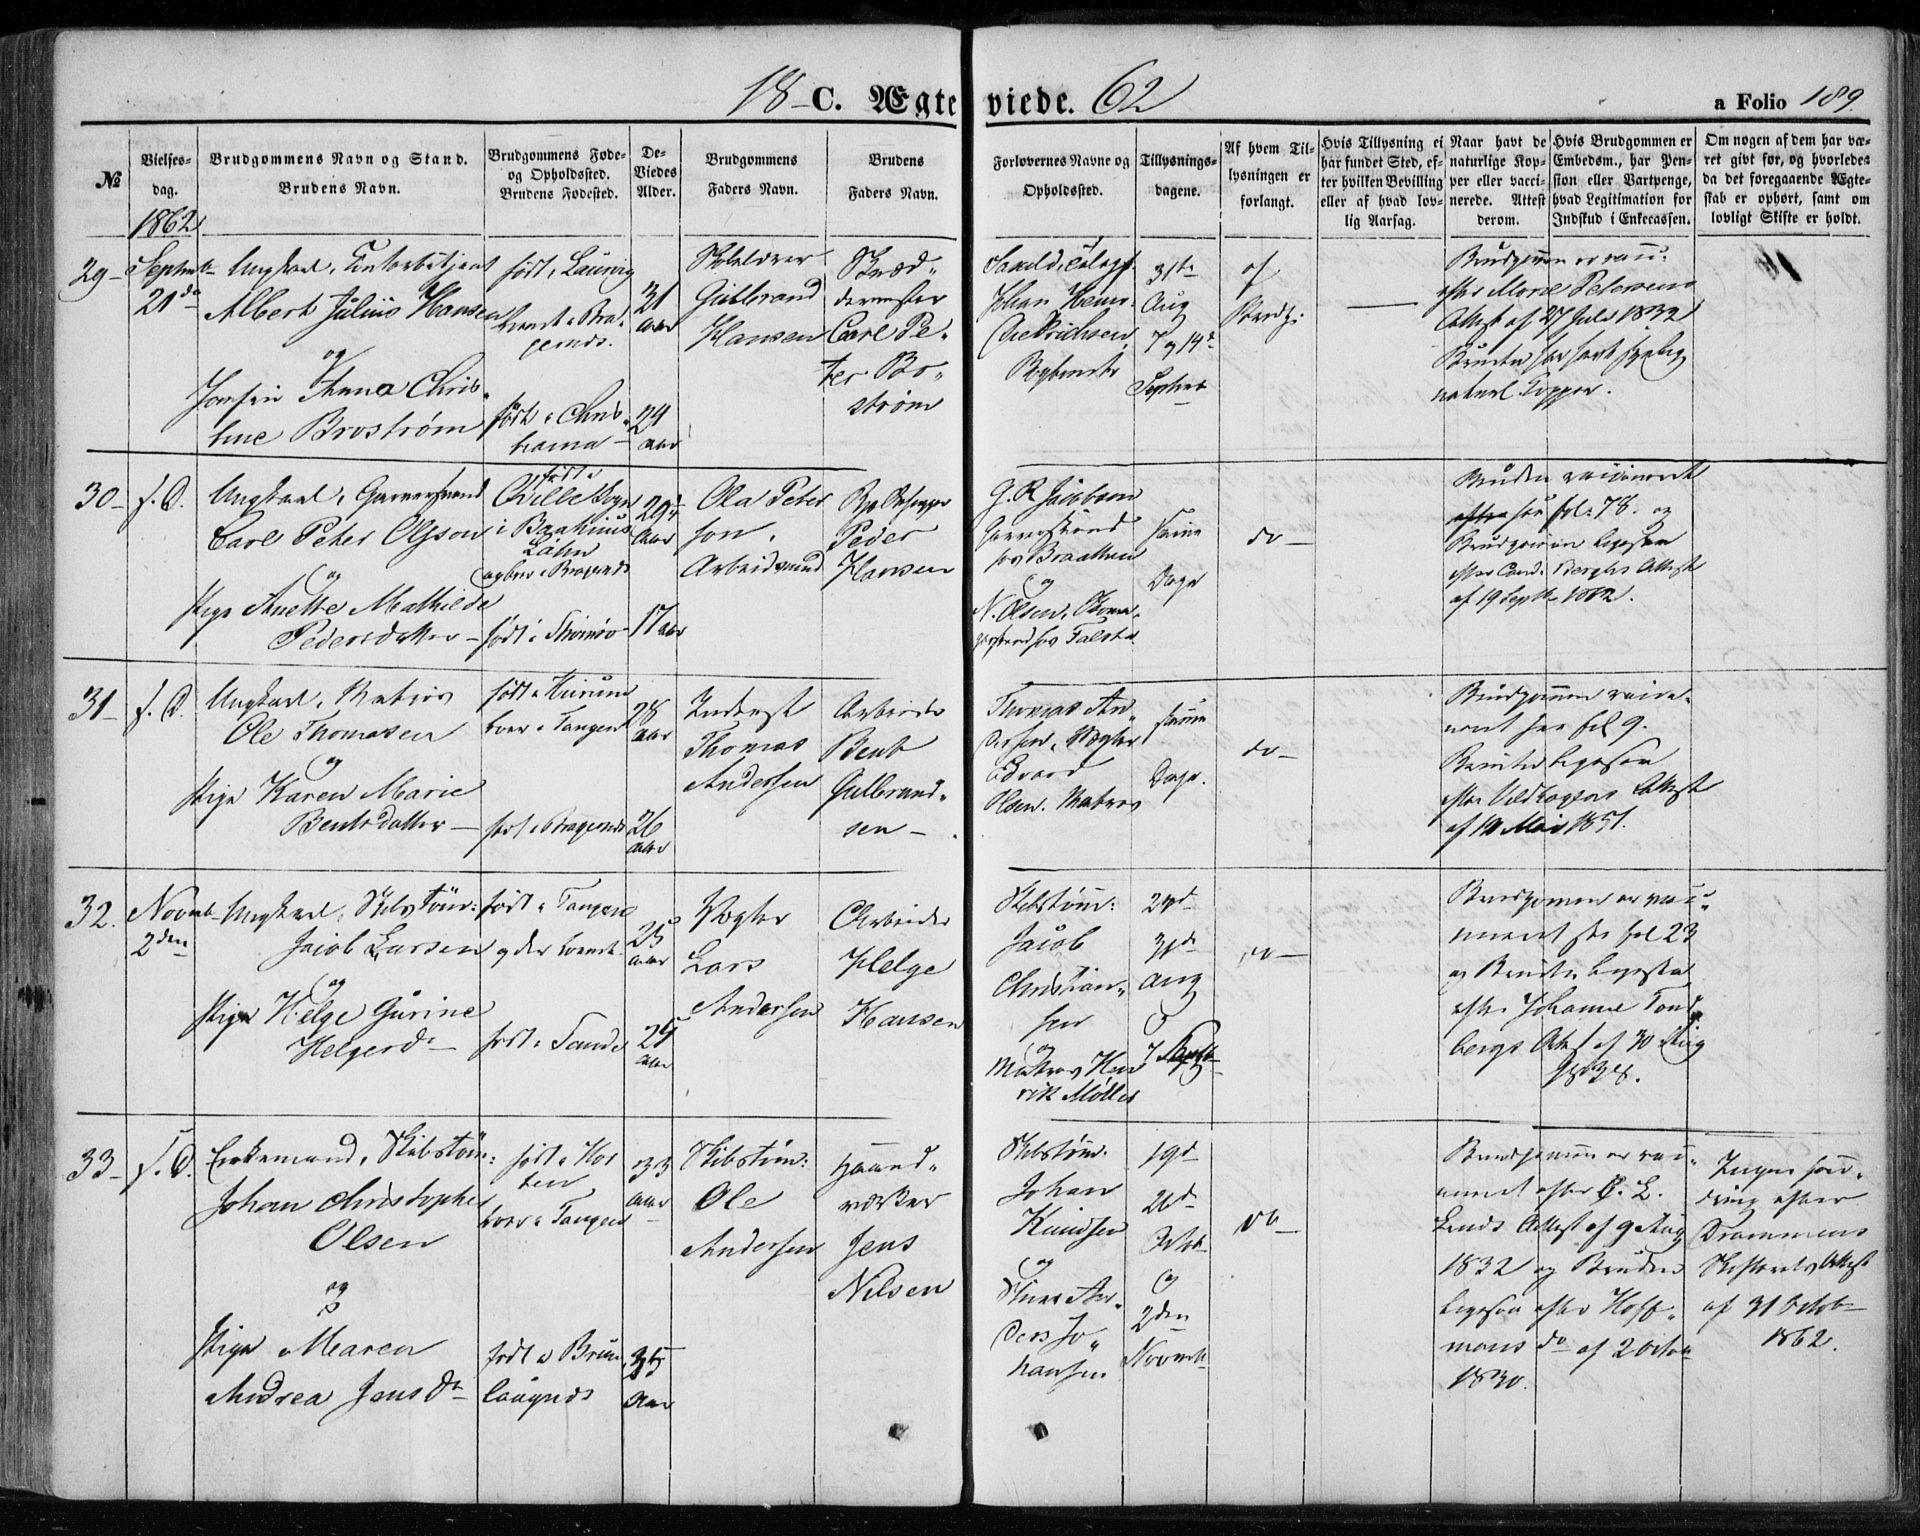 18 C. Ægteviede. 62
a Folio 189.
№
Vielses-
dag.
Brudgommens Navn og Stand.
Brudens Navn.
Brudgommens Føde-
og Opholdssted.
Brudens Fødested.
De
Viedes
Alder.
Brudgommens
Faders Navn.
Brudens
Faders Navn.
Forlovernes Navne og
Opholdssted.
Tillysnings-
dagene.
Af hvem Til-
lysningen er
forlangt.
Hvis Tillysning ei
har fundet Sted, ef-
ter hvilken Bevilling
eller af hvad lov-
lig Aarsag.
Naar havt de
naturlige Kop-
per eller vacci-
nerede. Attest
derom.
Hvis Brudgommen er
Embedsm., har Pen-
sion eller Vartpenge,
hvad Legitimation for
Indskud i Enkecassen.
Om nogen af dem har væ-
ret givt før, og hvorledes
da det foregaaende Ægte-
skab er ophørt, samt om
lovligt Skifte er holdt.
1862
29
Septemb
21de
Ungkarl,
Albert Julius Hansen
og
Anna Chris-
tine Broström
født i Laurvig
født i Chris-
tiania
31
aar
24
aar
Gulbrand
Hansen
Skræd-
dermester
Carl Pe-
ter Bo-
ström
Johan
31te
Aug
7 og 14de
Septemb
af
Brudg:
Brudgommen er vacc:
efter Petersens
Attest af 27 Juli 1832
Bruden har havt
naturl. Kopper.
30
s. D.
Ungkarl, Garversvend
Carl Peter Olsson
og
Pige Anette Mathilde
Pedersdatter
født i
Sogn
i Baahuus
Lähn
født i Thomsø
29
aar
17 aar
Ola Peter
son,
Arbeidsmand
Peder
Hansen
G. R. Jacobsen
Garversvend
hos Braathen
og
N. Olsen,
hos Falsta
samme
Dage
do
Bruden vaccineret
efter her fol. 78. og
Brudgommen ligesaa
efter Cand. Berghs Attest
af 19 Septb 1862.
31
s. D.
Ungkarl, Matros
Ole Thomasen
og
Pige Karen Marie
Bentsdatter
født i Hurum
boer i Tangen
født i Bragernes
28
aar
26
aar
Inderst
Thomas
Andersen
Arbeider
Bent
Gulbrand-
sen
Thomas An-
dersen, Vægter
Edvard
Olsen. Matros
samme
Dage.
do
Brudgommen vacci-
neret her fol 9.
Bruden ligesaa
efter Attest
af Mai 1851.
32.
Novmb
2den
Ungkarl, Skibstøm:
Jacob Larsen
og
Pige Helge Gurine
Helgersd
født i Tangen
født i Sande
25
aar
25
aar
Vægter
Lars
Andersen
Arbeider
Helge
Hansen
Skibstøm:
Jacob
Christian-
sen
og
Matros Hen
rik Møller
24de
31de
Aug
7 Septb
do
Brudgommen er vacci-
neret fol 23
og Bruden ligesaa
efter Johanne Tand
bergs Attest af 30 Aug
33
s. D.
Enkemand, Skibstøm:
Johan Christopher
Olsen
og
Pige Maren
Andrea Jensd
født i Hol
ten
boer i Tangen
født i Brun
laugnæs
33
aar
35
aar
Skibstøm:
Ole
Andersen
Haand-
værker
Jens
Nilsen
Skibstøm:
Johan
Knudsen
og
An-
ders Jo-
hansen
19de
26de
Octob
og
2den
Novemb
do
Brudgommen er vacci-
neret efter L.
Linds Attest af 9 Aug
1832 og Bruden
ligesaa efter Hoff-
mans do af 2 Octob
1830.
Ingen hin-
dring efter
Drammens
Skifterets Attest
af 31 Octob
1862.